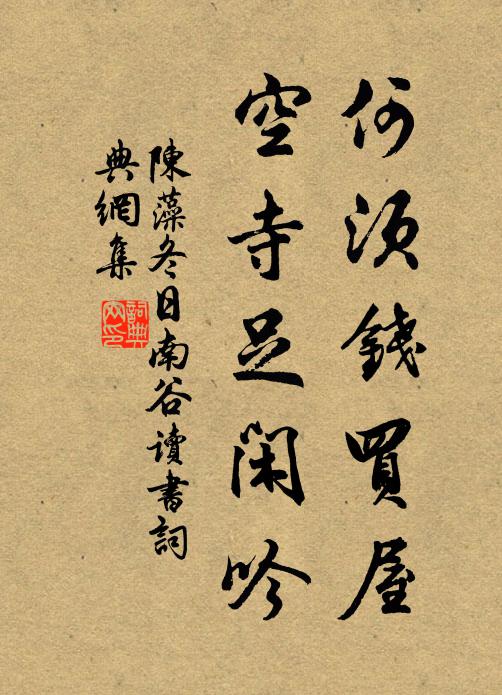 何須錢買屋
空寺足閑吟
陳藻冬日南谷讀書詞
典網集
詞典
网印